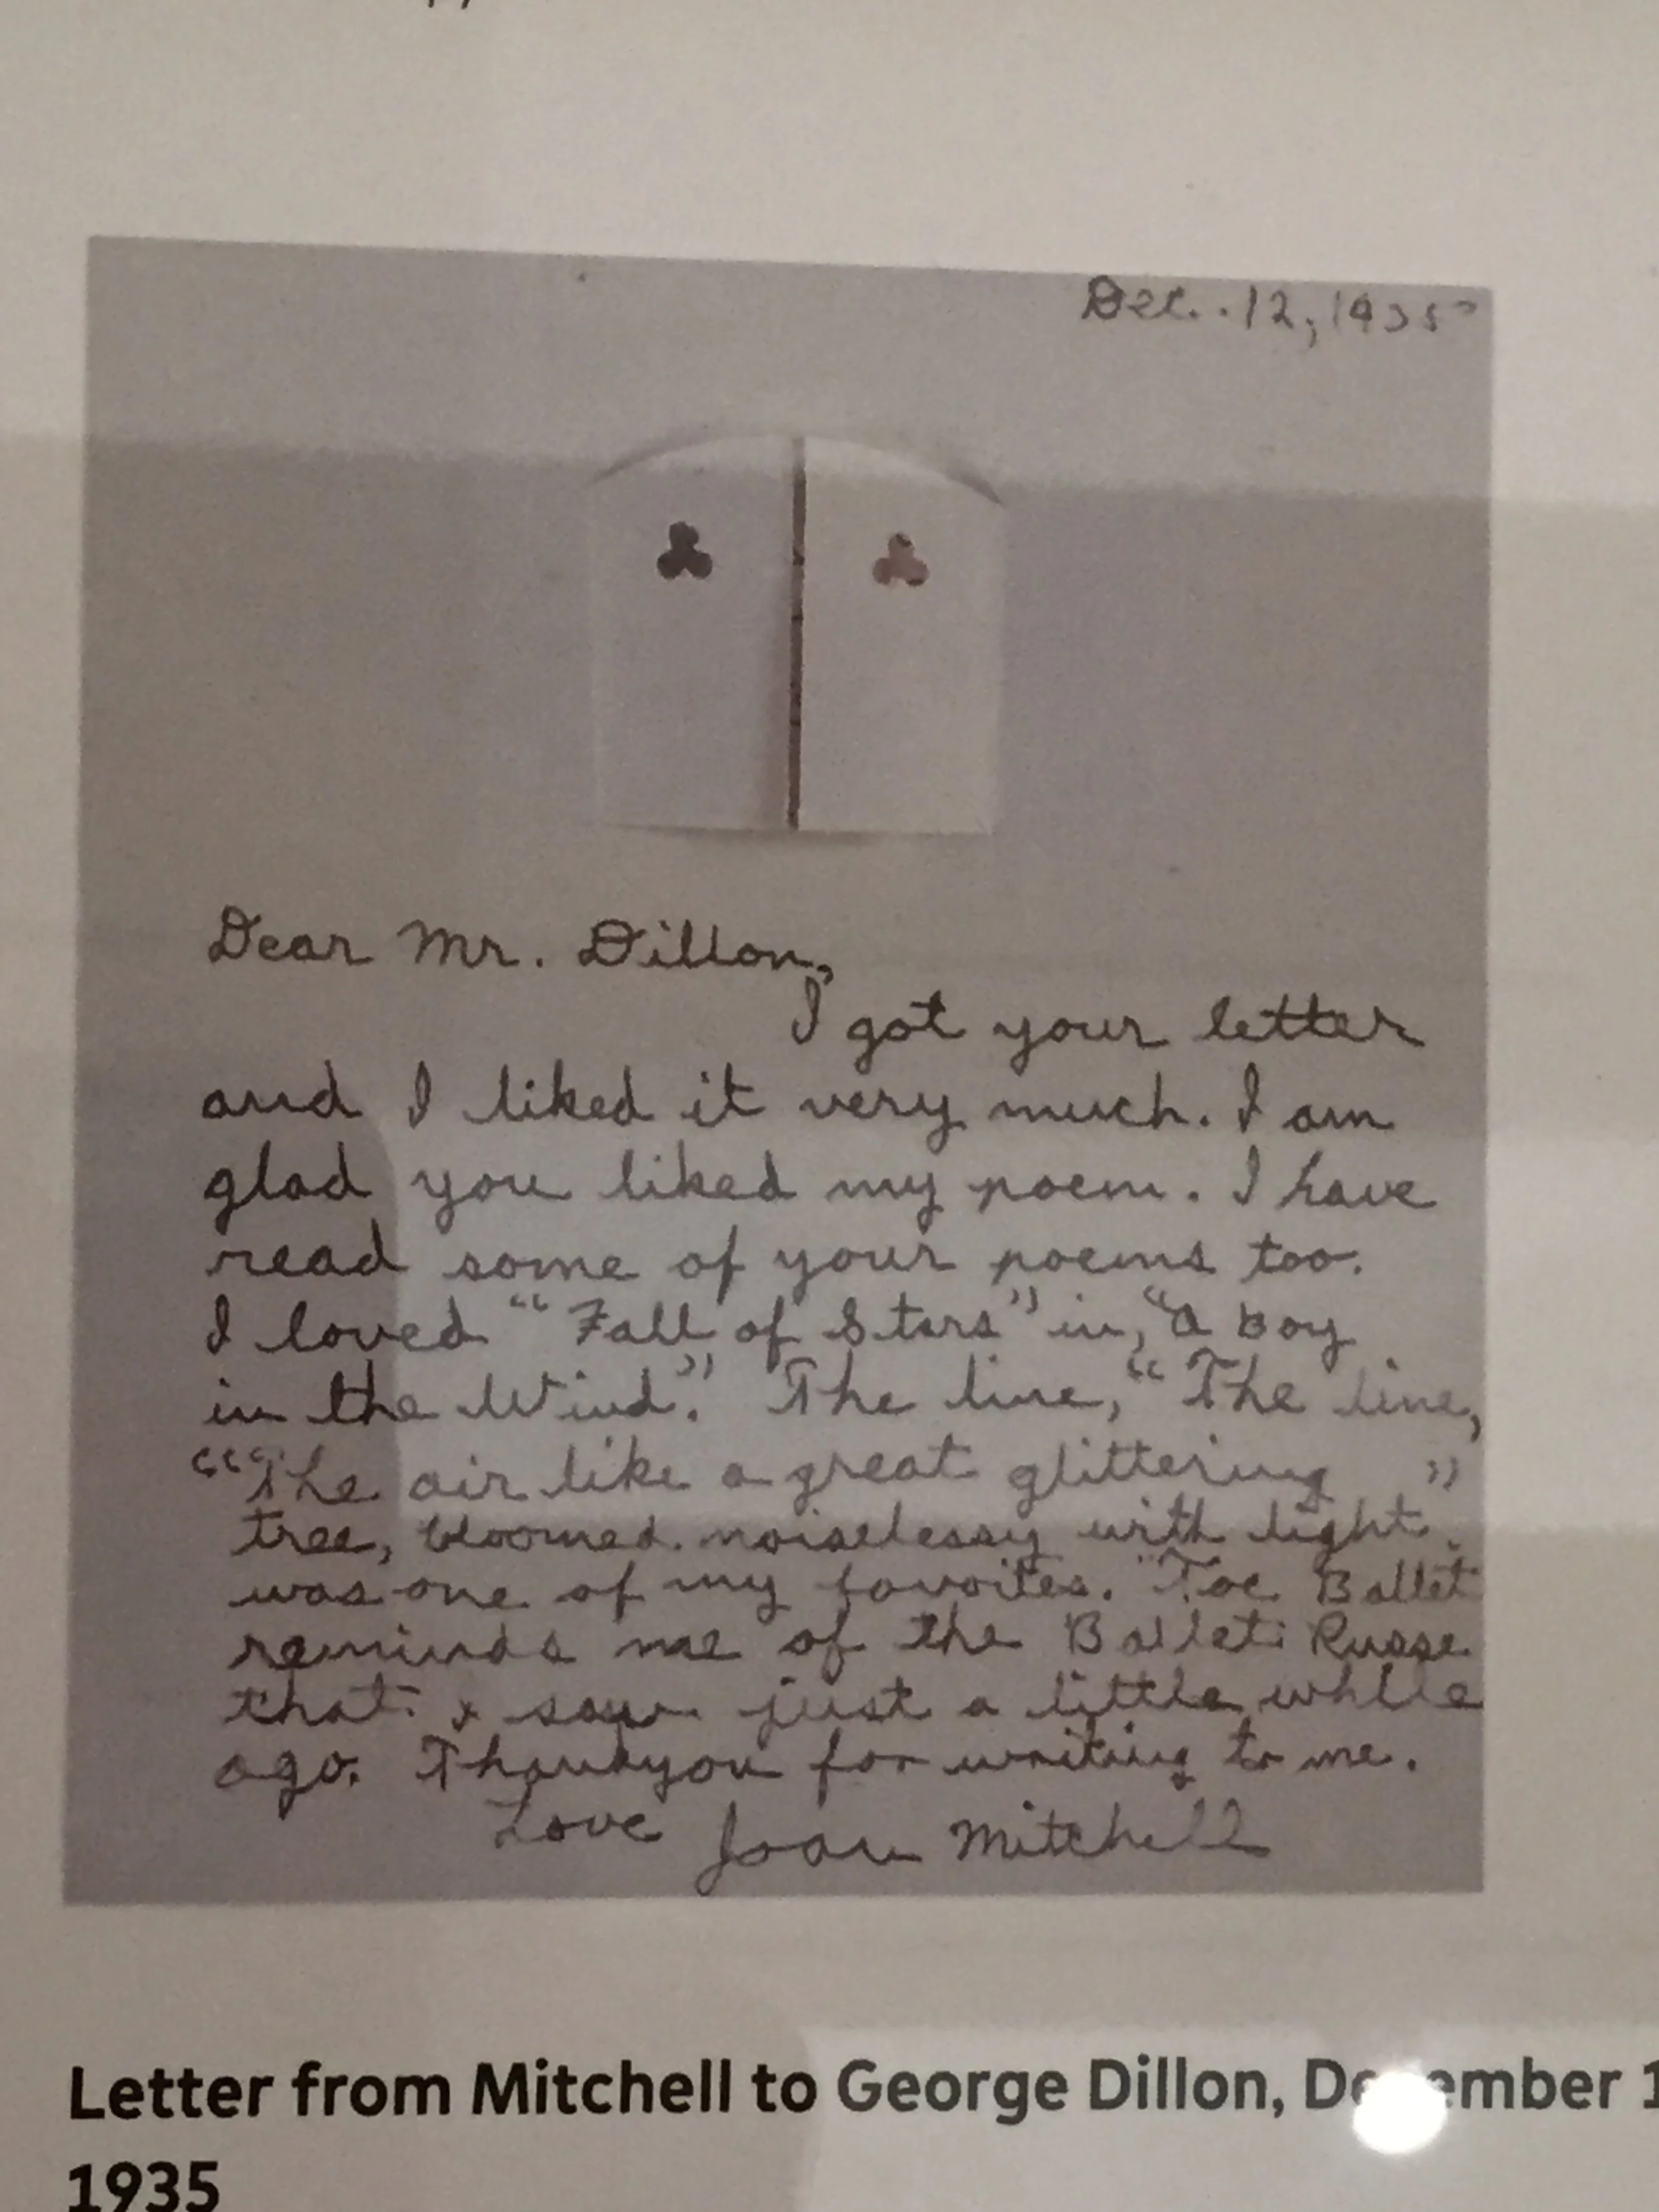 Dec. 12, 1935
Dear Mr. Dillon,
I got your letter
and I liked it very much. I am
glad you liked my poem. I have
read some of your poems too.
I loved "Fall of Stars" in, "a boy
in the Wind." The line, "The line,
""The air like a great glittering "
tree, bloomed noiselessy with light.
was one of my favorites. "Toe Ballet
reminds me of the Ballet Russe
that I saw just a little while
ago. Thankyou for writing to me.
Love Joan Mitchell
Letter from Mitchell to George Dillon, December 1
1935